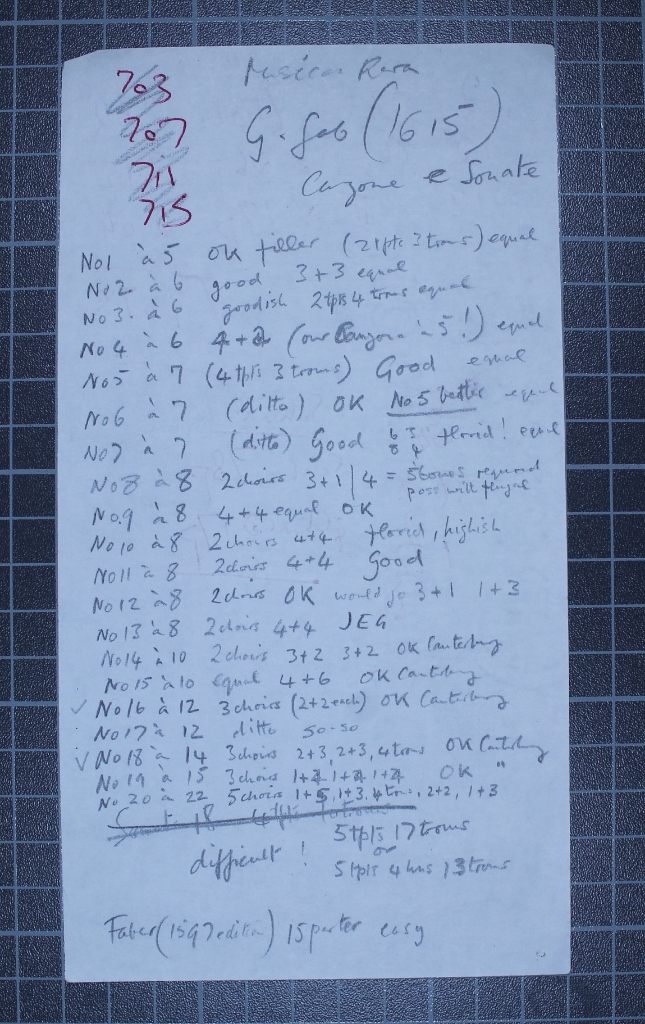 Musica Rara
703
707
711
715
G. Gab (1615)
Canzone e Sonate
No1 à 5 OK filler (2 tpts 3 troms) equal
No2. à 6 good 3+3 equal
No3. à 6 goodish 2tpts 4 troms equal
No4 à 6 4+2 (our Canzona à 5!) equal
No5 à 7 (4tpts 3 troms) Good equal
No6 à 7 (ditto) OK No 5 better equal
No7 à 7 (ditto) Good florid! equal
No8 à 8 2choirs 3+1 | 4 = 5bones required
poss with flugal
No.9 à 8 4+4 equal OK
No10 à 8 2choirs 4+4 florid, highish
No11 à 8 2choirs 4+4 Good
No12 à 8 2choirs OK would go 3+1 1+3
No13 à 8 2choirs 4+4 JEG
No14 à 10 2choirs 3+2 3+2 OK Canterbury
No15 à 10 equal 4+6 OK Canterbury
✓ No16 à 12 3choirs (2+2 each) OK Canterbury
No17 à 12 ditto so-so
✓ No18 à 14 3choirs 2+3, 2+3, 4troms OK Canterbury
No19 à 15 3choirs 1+4 1+4 1+4 OK "
No20 à 22 5choirs 1+5, 1+3, 4trom, 2+2, 1+3
18 4tpts
difficult! 5tpts 17troms
or
5tpts 4hns 13troms
Faber (1597 edition) 15 parter easy